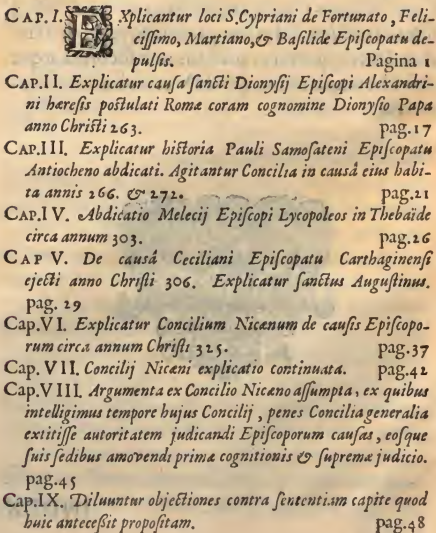 CAP. I. EXplicantur loci S. Cypriani de Fortunato, Feli-
cißimo, Martiano, & Basilide Episcopatu de-
pulsis. Pagina 1
CAP. II. Explicatur causa sancti Dionysij Episcopi Alexandri-
ni hæresis postulati Romæ coram cognomine Dionysio Papa
anno Christi 263. pag. 17
CAP. III. Explicatur historia Pauli Samosateni Episcopatu
Antiocheno abdicati. Agitantur Concilia in causâ eius habi-
ta annis 266. & 272. pag. 21
CAP. IV. Abdicatio Melecij Episcopi Lycopoleos in Thebaïde
circa annum 303. pag. 26
CAP V. De causâ Ceciliani Episcopatu Carthaginensi
ejecti anno Christi 306. Explicatur sanctus Augustinus.
pag. 29
Cap. VI. Explicatur Concilium Nicænum de causis Episcopo-
rum circa annum Christi 325. pag. 37
Cap. VII. Concilij Nicæni explicatio continuata. pag. 42
Cap. VIII. Argumenta ex Concilio Nicæno assumpta, ex quibus
intelligimus tempore hujus Concilij, penes Concilia generalia
extitisse autoritatem judicandi Episcoporum causas, eosque
suis sedibus amovendi primæ cognitionis & supremæ judicio.
pag. 45
Cap. IX. Diluuntur objectiones contra sententiam capite quod
huic anteceßit propositam. pag. 48